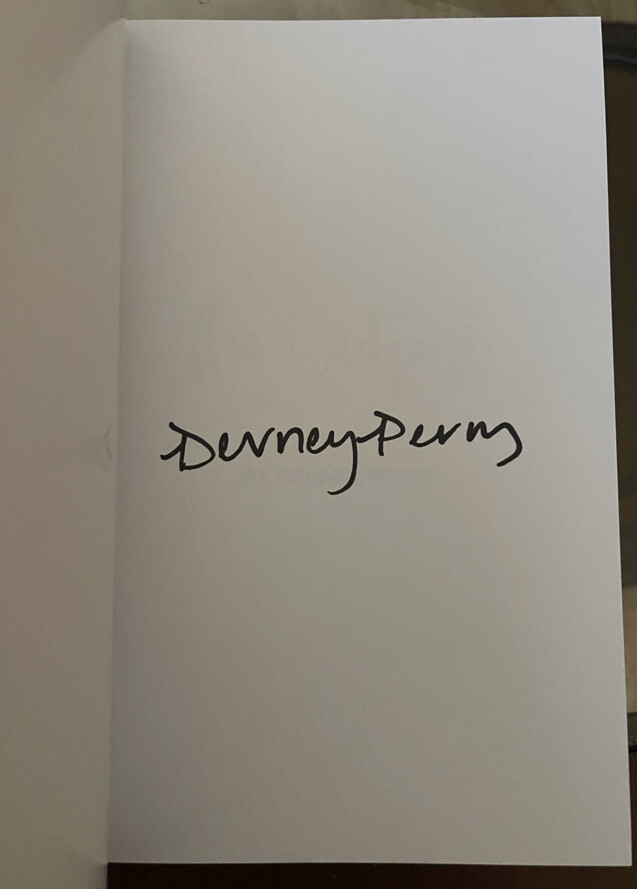 Devney Perry